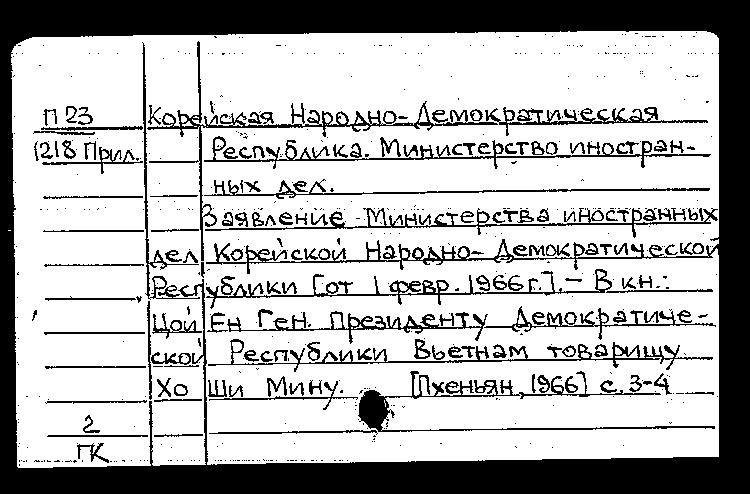 П 23 Корейская Народно-Демократическая
1218 Прил. Республика. Министерство иностран-
ных дел.
Заявление Министерства иностранных
дел Корейской Народно-Демократической
Республики [от 1 февр. 1966 г.]. - В кн.:
Цой Ен Ген. Президенту Демократиче-
ской Республики Вьетнам товарищу
Хо Ши Мину. [Пхеньян, 1966] с. 3-4
2
ГК